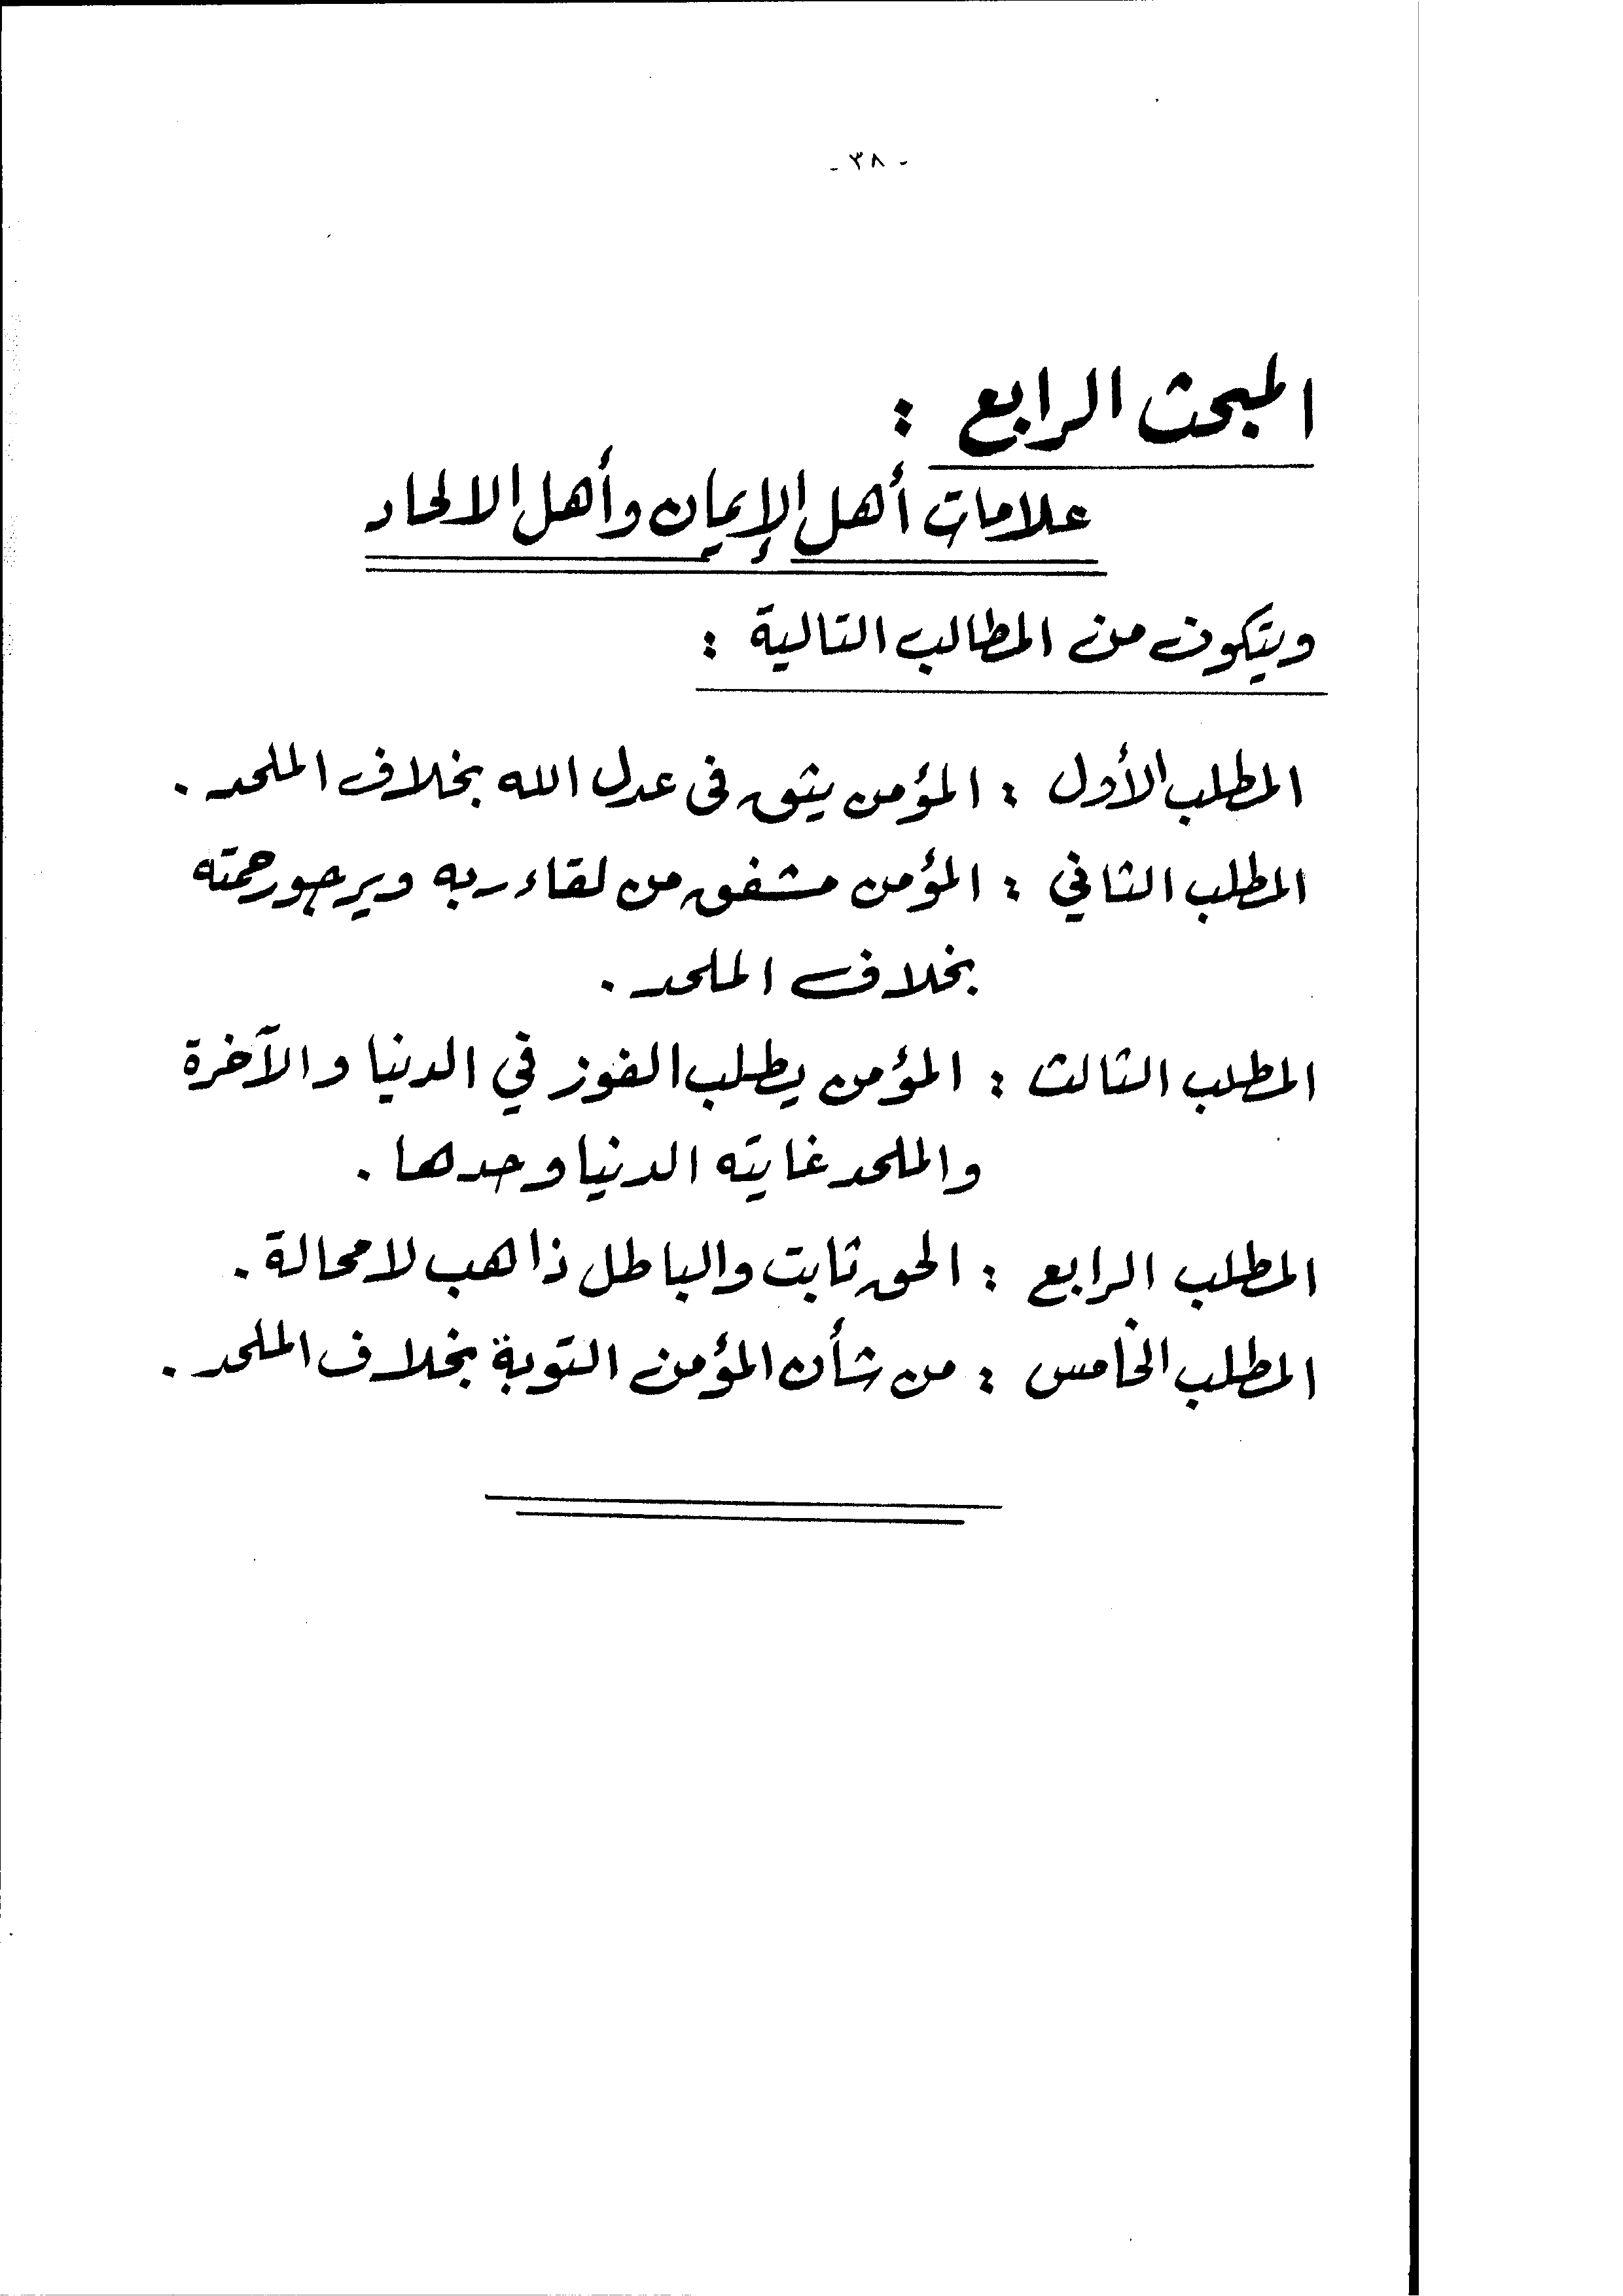 - ٣٨ -
المبحث الرابع :
علامات أهل الإيمان وأهل الالحاد
ويتكون من المطالب التالية :
المطلب الأول : المؤمن يثق فى عدل الله بخلاف الملحد .
المطلب الثاني : المؤمن مشفق من لقاء ربه ويرجو رحمته
بخلاف الملحد .
المطلب الثالث : المؤمن يطلب الفوز في الدنيا والآخرة
والملحد غايته الدنيا وحدها .
المطلب الرابع : الحق ثابت والباطل ذاهب لا محالة .
المطلب الخامس : من شأن المؤمن التوبة بخلاف الملحد .